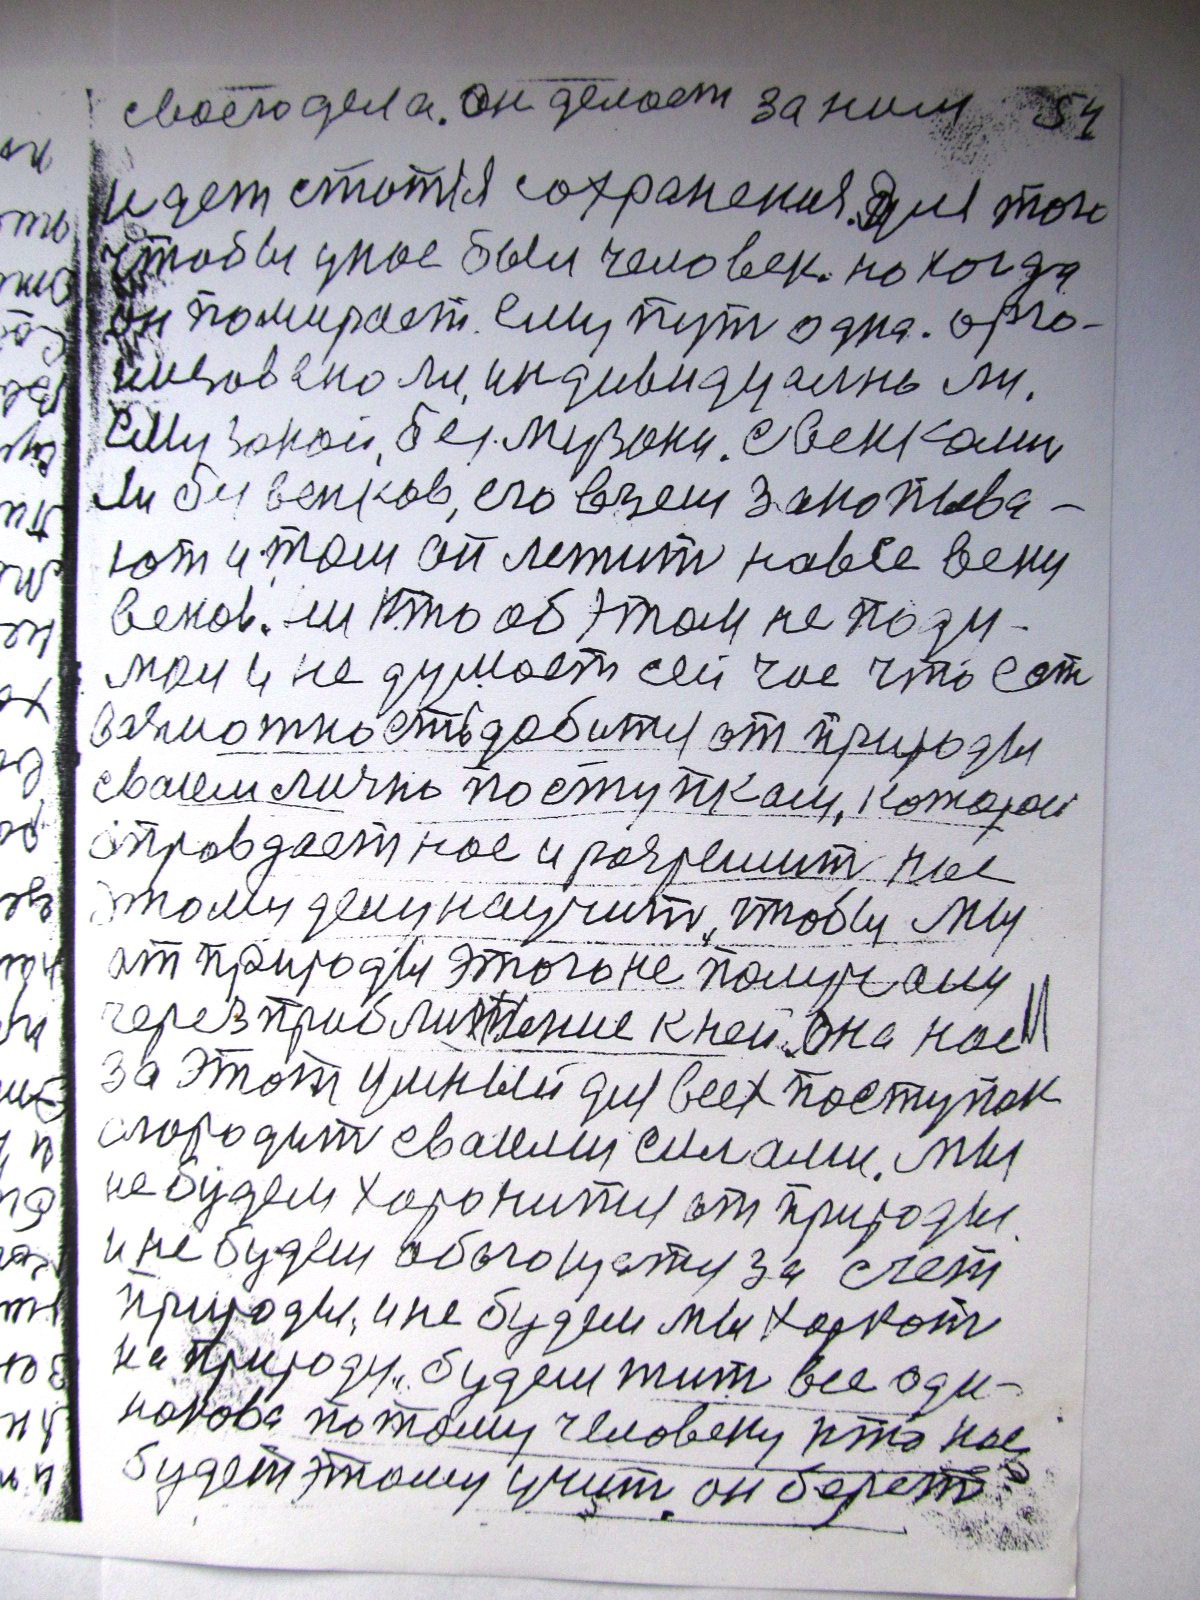 своего дела. Он делает за ним 54
идет статья сохранения. Для того
чтобы у нас был человек. но когда
он помирает. Ему пут одна. орга-
низовано ли, индивидуално ли.
Ему зоной, без музони. с венками
ли биз венков, его взем закопыва-
ют и там он лежит навсе веки
веков. ни кто об этом не поду-
мал и не думает сей час что ест
возможность добится от природы
своем лично поступкам, которой
оправдает нас и разрешит нас
этому делу научит, чтобы мы
от природы этого не получали
через приближение к ней. Она нас
за этот умный для всех поступок
огородит своими силами. мы
не будем харонится от природы.
и не будем обогощатся за счет
природы, и не будем мы харкат
на природу.. будем жит все оди-
накова потому человеку кто нас
будет этому учит. он берет